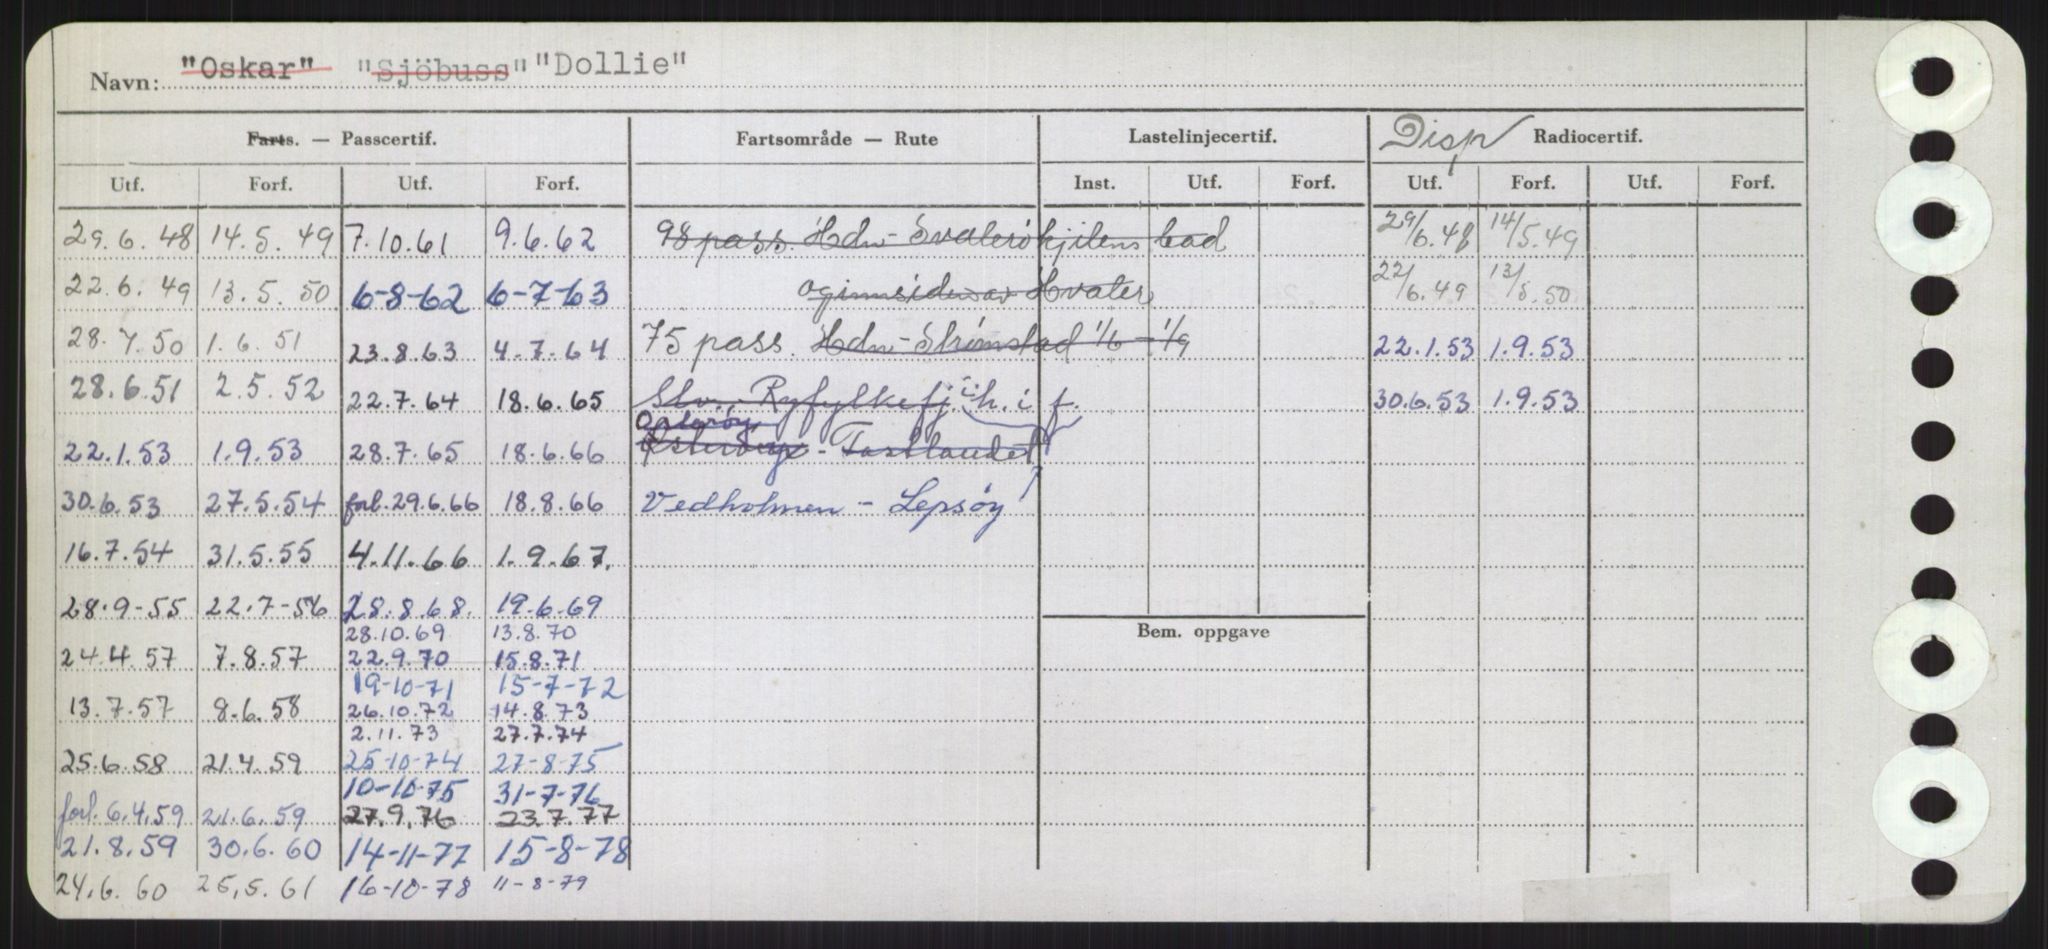 Navn: "Oskar" "Sjöbuss" "Dollie"
Farts. — Passcertif. Fartsområde — Rute Lastelinjecertif. Disp Radiocertif.
Utf. Forf. Utf. Forf. Inst. Utf. Forf. Utf. Forf. Utf. Forf.
29.6.48 14.5.49 7.10.61 9.6.62 98 pass. Hdn - Svalerö kjilens bad 29/6.48 14/5.49
22.6.49 13.5.50 6-8-62 6-7-63 og innsiden av Hvaler 22/6.49 13/5.50
28.7.50 1.6.51 23.8.63 4.7.64 75 pass. Hdn - Strömstad 1/6 - 1/9 22.1.53 1.9.53
28.6.51 2.5.52 22.7.64 18.6.65 Stv. Ryfylkefj. i h. i f. 30.6.53 1.9.53
Osterøy
22.1.53 1.9.53 28.7.65 18.6.66 - Fastlandet
30.6.53 27.5.54 forl. 29.6.66 18.8.66 Vedholmen - Lepsøy
16.7.54 31.5.55 4.11.66 1.9.67.
28.9-55 22.7-56 28.8.68. 19.6.69
28.10.69 13.8.70
Bem. oppgave
24.4.57 7.8.57 22.9.70 15.8.71
19-10-71 15-7-72
13.7.57 8.6.58 26.10.72 14.8.73
2.11.73 27.7.74
25.6.58 21.4.59 25-10-74 27-8-75
10-10-75 31-7-76
forl. 6.4.59 21.6.59 27.9.76 23.7.77
21.8.59 30.6.60 14-11-77 15-8-78
24.6.60 25.5.61 16-10-78 11-8-79